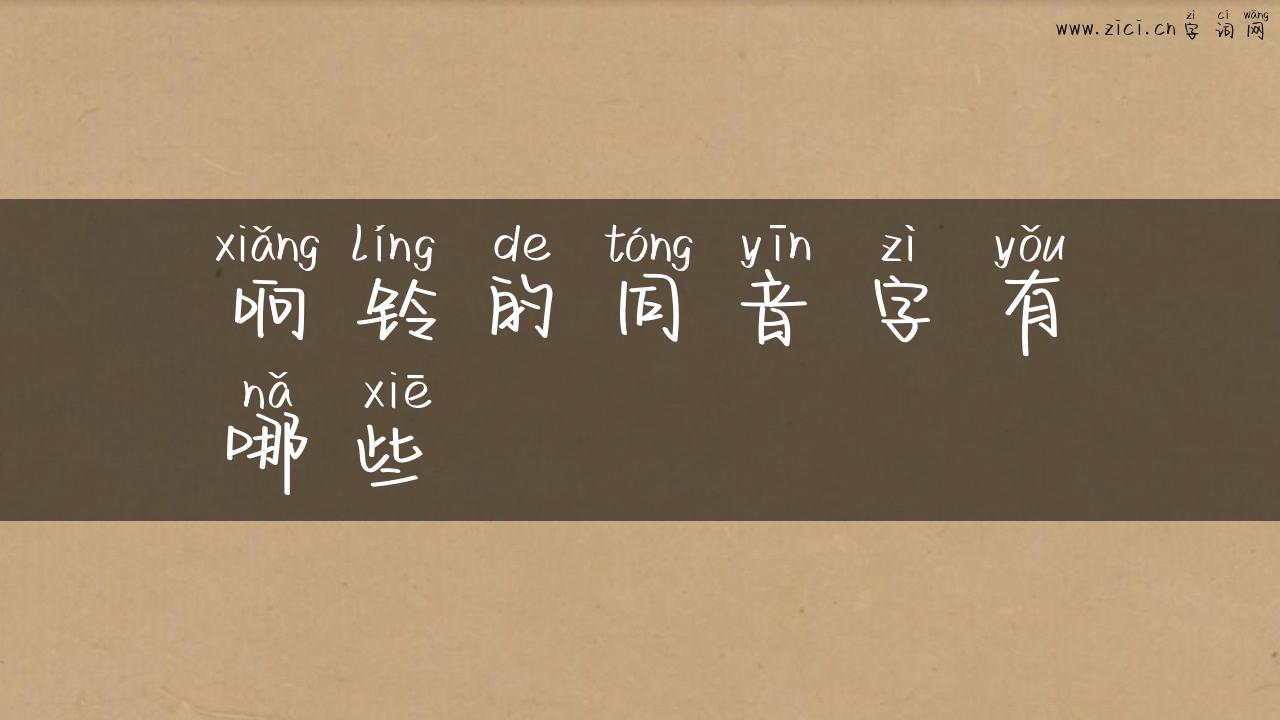 zì cí wǎng
www.zici.cn 字词网
xiǎng líng de tóng yīn zì yǒu
响铃的同音字有
nǎ xiē
哪些